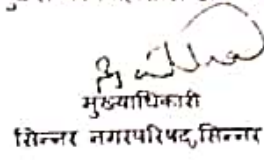 मुख्याधिकारी
सिन्नर नगरपरिषद,सिन्नर